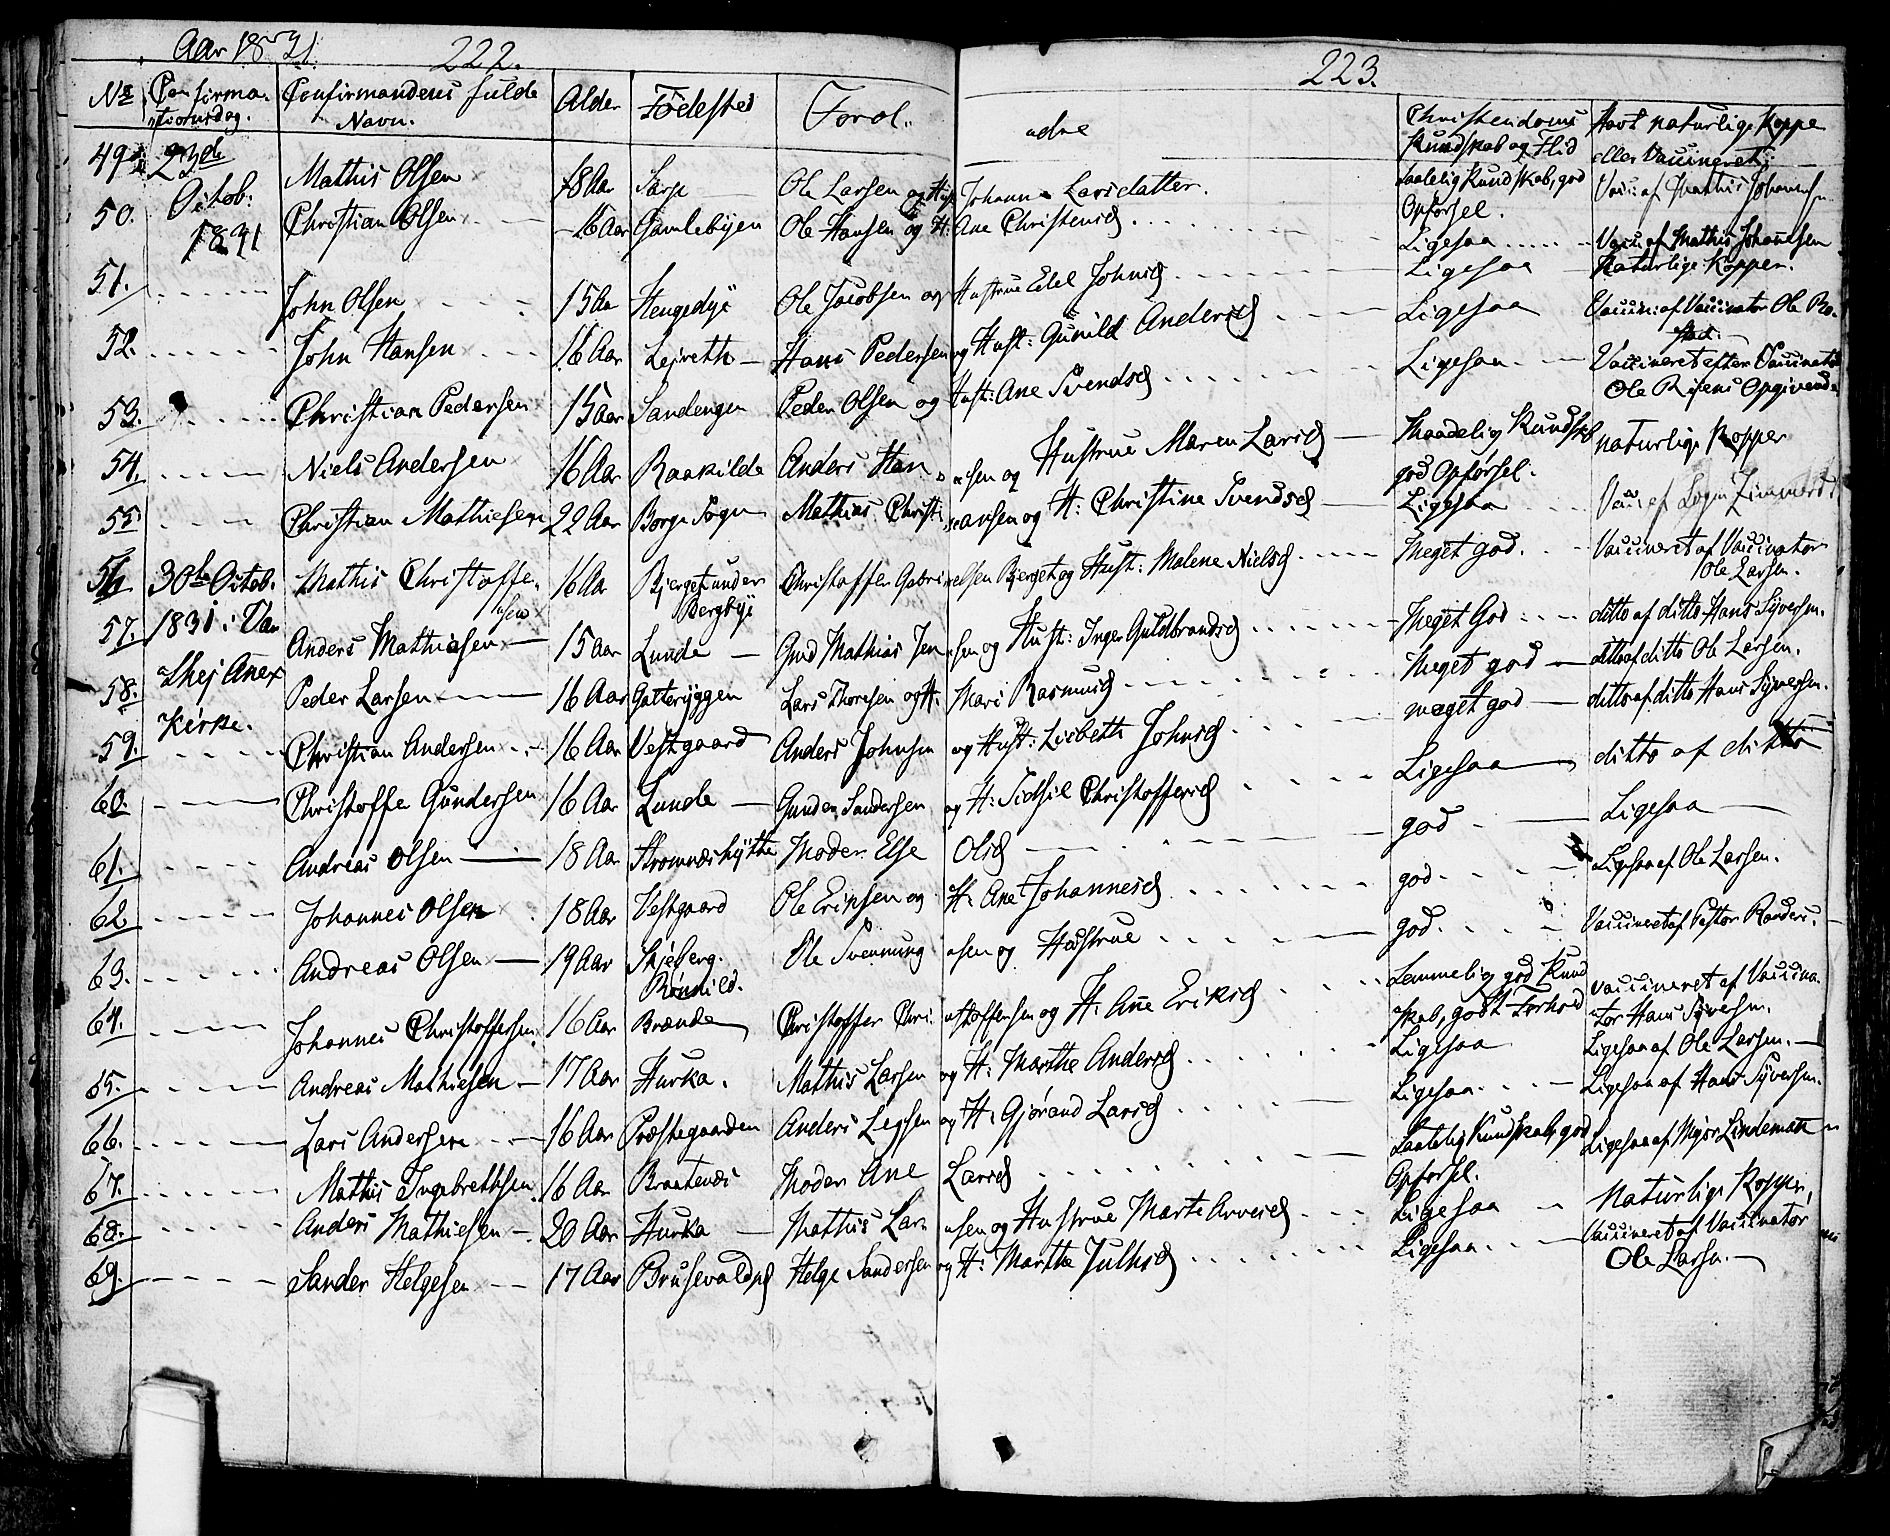 Aar 1831. 222.
223.
No Confirmationsdag. Confirmandens fulde Navn. Alder Fødested Foræl- ældre Christendoms Kundskab og Flid Havt naturlige Koppe eller Vaccineret
49 23de Octob: 1831 Mathis Olsen 18 Aar Sarp Ole Larsen og H Johanne Larsdatter. Saadelig Kundskab, god Opførsel. Vacc: af Mathis Johannsen
50. Christian Olsen 16 Aar Gamlebyen Ole Hansen og H: Ane Christensd Ligesaa Vacc: af Mathis Johannesen
51. John Olsen 15 Aar Hengedye Ole Jacobsen og Hustrue Edel Johnsd Ligesaa Naturlige Kopper.
52. John Hansen 16 Aar Lejreth Hans Pedersen og Hust: Gunild Andersd Ligesaa Vaccin: af Vaccinator Ole Ro-
53. Christian Pedersen 15 Aar Sandengen Peder Olsen og Hust: Ane Svendsd Ligesaa Vaccineret efter Vaccinator Ole Opgivende
54. Niels Andersen 16 Aar Raakilde Anders Hansen og Hustrue Maren Larsd Maadelig Kundskb god Opførsel. naturlige Kopper
55 Christian Mathiesen 22 Aar Borge Sogn Mathias Christiansen og H: Christine Svendsd Ligesaa Vacc: af
56 30te Octob. Mathis Christoffersen 16 Aar Bjerget under Bergbye Christoffer Gabrielsen Bjerget og Hust: Malene Nielsd Meget god. Vaccineret af Vaccinator Ole Larsen.
57. 1831 i Anders Mathiesen 15 Aar Lunde Gud Mathias Jensen og Hust: Inger Guldbrandsd Meget God ditto af ditto Hans Syversen.
58. Anex Peder Larsen 16 Aar Gatteryggen Lars Thoresen og H. Mari Rasmusd Meget god ditto af ditto Ole Larsen.
59. Kirke. Christian Andersen 16 Aar Vestgaard Anders Johnsen og Hust: Lisbeth Johnsd meget god ditto af ditto Hans Syversen.
60. Christoffe Gundersen 16 Aar Lunde Gunder Sandersen og H: Sidsil Christoffersd Ligesaa ditto af ditto
61. Andreas Olsen 18 Aar Stromnæshytte Moder Else Olsd god Ligesaa
62 Johannes Olsen 18 Aar Vestgaard Ole Eriksen og H. Ane Johannesd god Ligesaa af Ole Larsen.
63. Andreas Olsen 19 Aar Skjeberg. Ole Svennungsen og Hustrue god Vaccineret af Pastor Rander.
64. Johannes Christoffersen 16 Aar Brænde Christoffer Christoffersen og H. Ane Eriksd Temmelig god Kundskab, godt Forhold vaccineret af Vaccinator Hans Syversen.
65. Andreas Mathiesen 17 Aar Hurka. Mathis Larsen og H: Marthe Andersd Ligesaa Ligesaa af Ole Larsen.
66. Lars Andersen 16 Aar Præstegaarden Anders Leysen og H: Gjørand Larsd Ligesaa Ligesaa af Hans Syversen.
67. Mathis Ingebrethsen 16 Aar Braatenæs Moder Ane Larsd Saadelig Kundskab, god Opførsel. Ligesaa af Major Lindeman
68. Anders Mathiesen 20 Aar Hurka Mathis Larsen og Hustrue Marte Arvesd Ligesaa Naturlige Kopper,
69. Sander Helgesen 17 Aar Brusevaldpd Helge Sandersen og H: Marthe Julhsd Ligesaa Vaccineret af Vaccinator Ole Larsen.